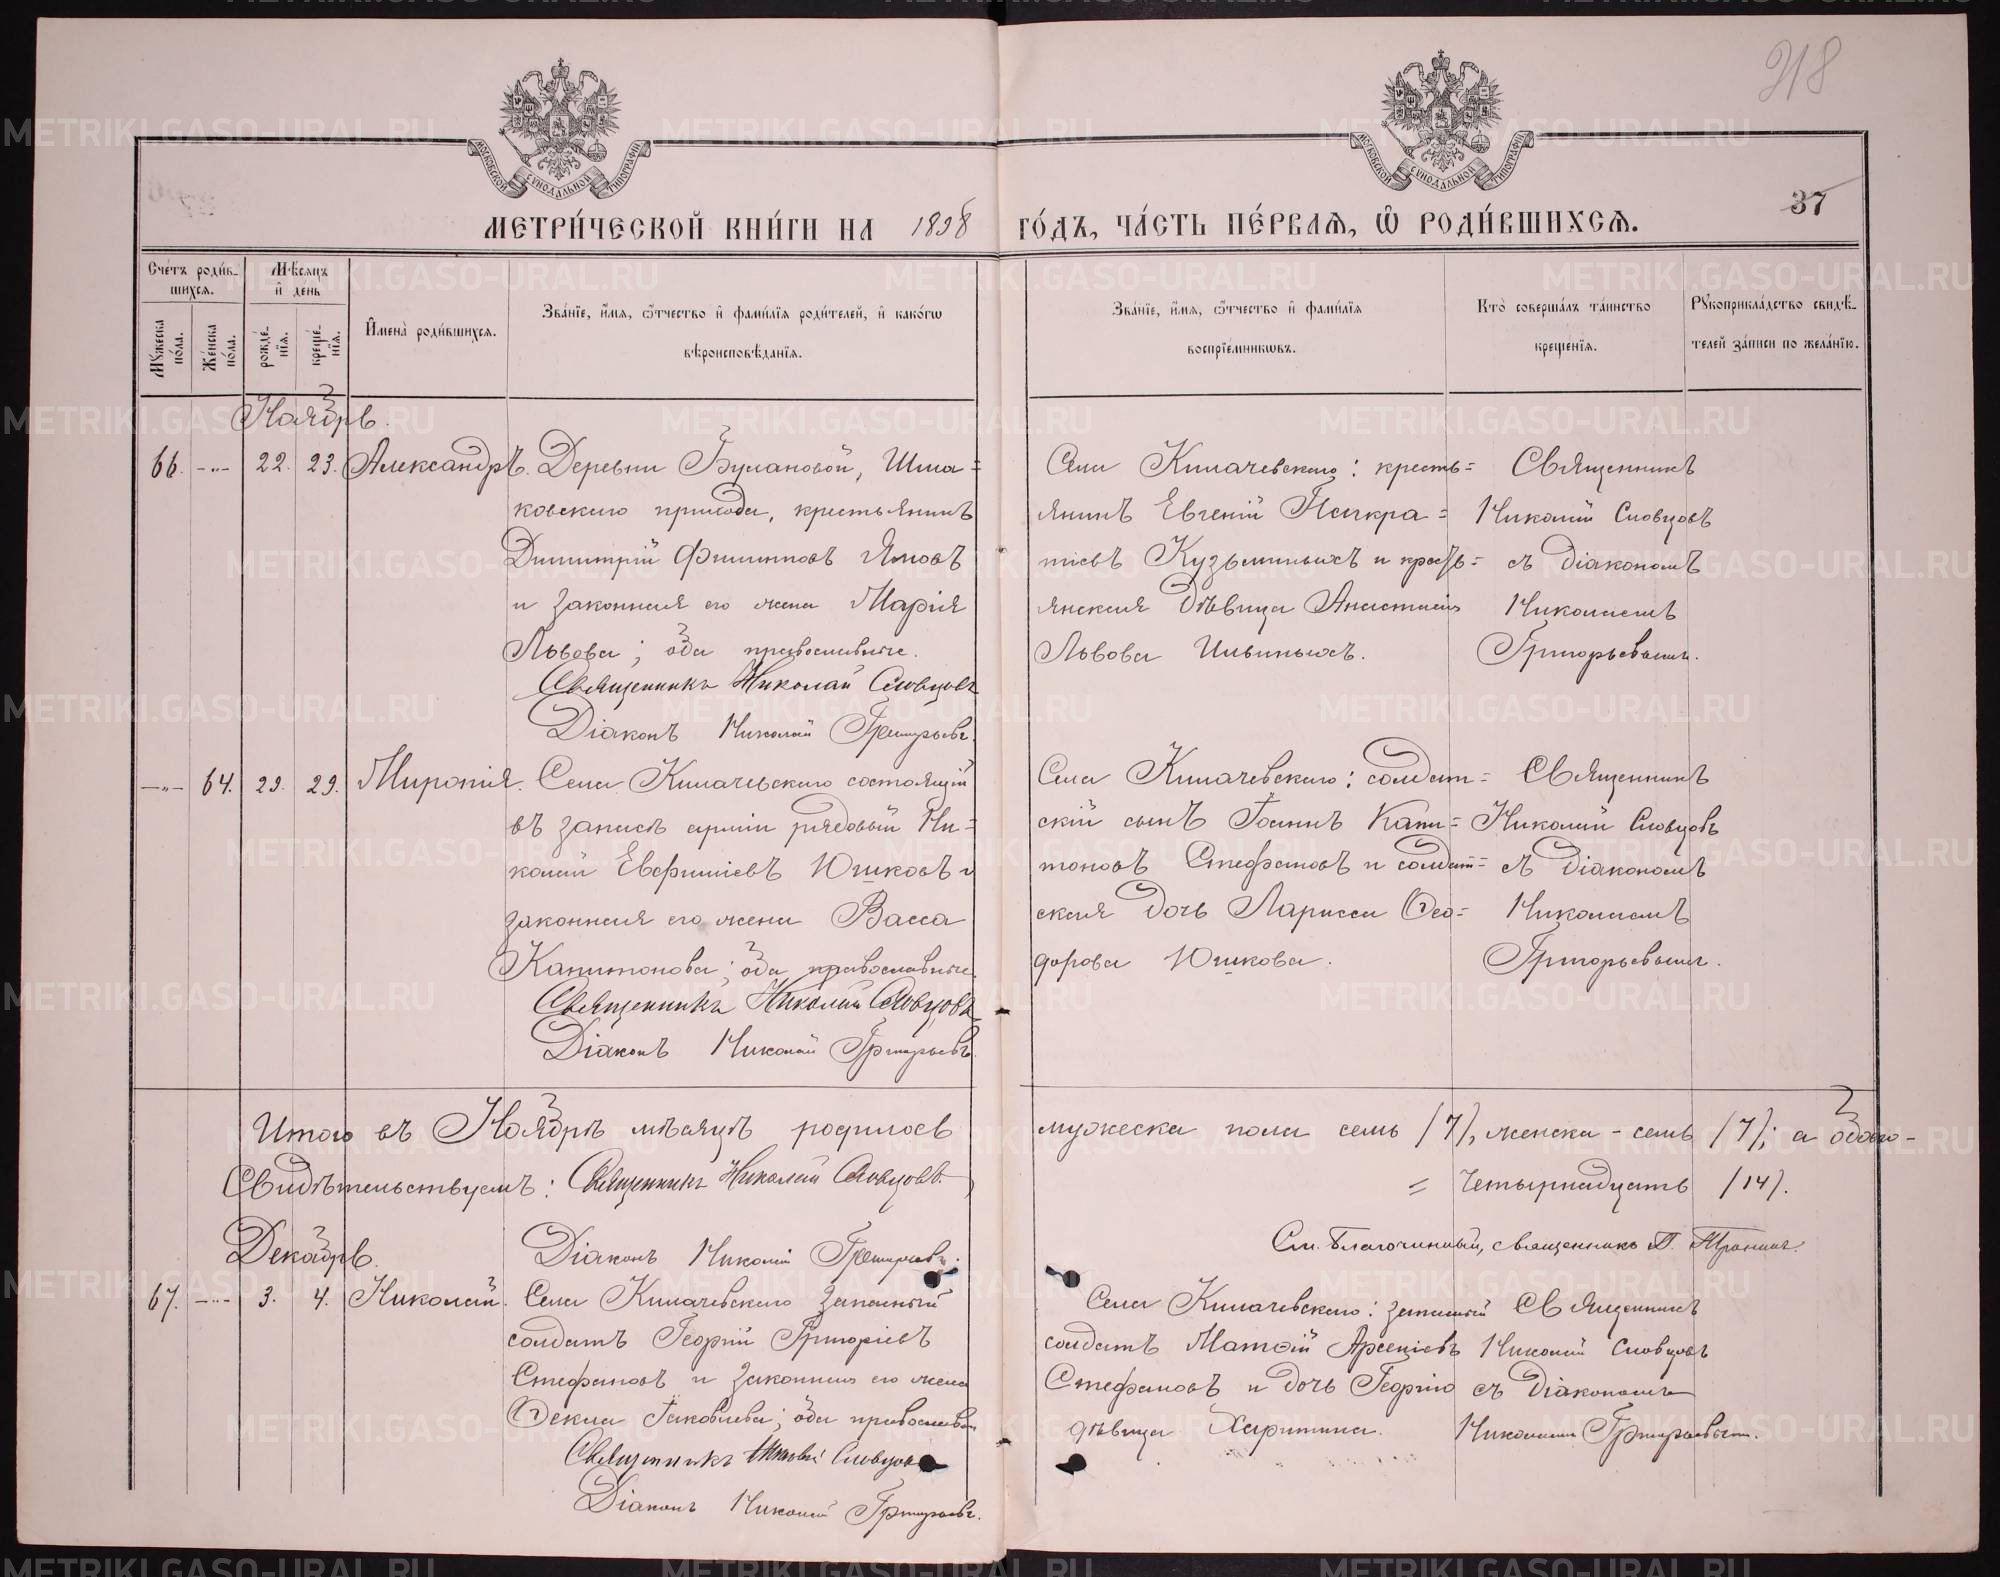 218
МОСКОВСКОЙ СѴНОДАЛЬНОЙ ТИПОГРАФІИ
МОСКОВСКОЙ СѴНОДАЛЬНОЙ ТИПОГРАФІИ
37
МЕТРИ́ЧЕСКОЙ КНИ́ГИ НА 1898 ГО́ДЪ, ЧА́СТЬ ПЕ́РВАЯ, Ѡ РОДИ́ВШИХСЯ.
Сче́тъ роди́в-
шихся.
Мѣсяцъ
и҆ де́нь
Мꙋжеска по́ла.
Же́нска по́ла.
рожде́нїя.
креще́нїя.
И҆мена̀ роди́вшихся.
Зва́нїе, и҆́мя, ѻ҆́тчество и҆ фами́лїя роди́телей, и҆ како́гѡ
вѣроисповѣ́данїя.
Зва́нїе, и҆́мя, ѻ҆́тчество и҆ фами́лїя
воспрїе́мникѡвъ.
Кто̀ соверша́лъ та́инство
креще́нїя.
Рꙋкоприкла́дство свидѣ́-
телей за́писи по жела́нїю.
Ноябрь.
66. -„- 22. 23. Александръ. Деревни Булановой, Шма=
ковскаго прихода, крестьянинъ
Димитрій Филипповъ Ямовъ
и законная его жена Марія
Львова; оба православные.
Священникъ Николай Словцовъ
Діаконъ Николай Григорьевъ.
Села Килачевскаго: кресть=
янинъ Евгеній Панкра=
тіевъ Кузьминыхъ и кресть=
янская дѣвица Анастасія
Львова Ильиныхъ.
Священникъ
Николай Словцовъ
съ діакономъ
Николаемъ
Григорьевымъ.
-„- 64. 29. 29. Миропія. Села Килачевскаго состоящій
въ запасѣ арміи рядовый Ни=
колай Евфиміевъ Юшковъ и
законная его жена Васса
Капитонова; оба православные.
Священникъ Николай Словцовъ
Діаконъ Николай Григорьевъ.
Села Килачевскаго: солдат=
скій сынъ Іоаннъ Капи=
тоновъ Стефановъ и солдат=
ская дочь Ларисса Ѳео=
дорова Юшкова.
Священникъ
Николай Словцовъ
съ діакономъ
Николаемъ
Григорьевымъ.
Итого въ Ноябрѣ мѣсяцѣ родилось мужеска пола семь /7/, женска - семь /7/; а обоего -
= четырнадцать /14/.
Свидѣтельствуемъ: Священникъ Николай Словцовъ.
Діаконъ Николай Григорьевъ.
См. Благочинный, священникъ П.
Декабрь.
67. -„- 3. 4. Николай. Села Килачевскаго запасный
солдатъ Георгій Григоріевъ
Стефановъ и законная его жена
Ѳекла Іаковлева; оба православн.
Священникъ Николай Словцовъ
Діаконъ Николай Григорьевъ.
Села Килачевскаго: запасный
солдатъ Матѳій Арсеніевъ
Стефановъ и дочь Георгія
дѣвица Харитина.
Священникъ
Николай Словцовъ
съ діакономъ
Николаемъ Григорьевымъ.
METRIKI.GASO-URAL.RU